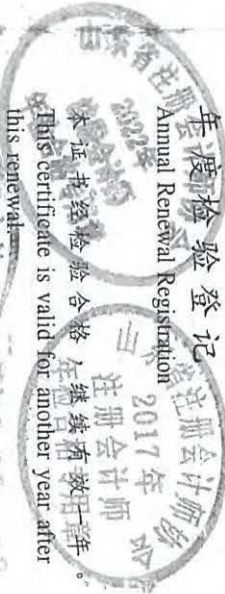 年度检验登记
Annual Renewal Registration
本证书经检验合格，继续有效一年。
This certificate is valid for another year after
this renewal.
省注册会计师协会
2017年
注册会计师
年检合格专用章
省注册会
2022年